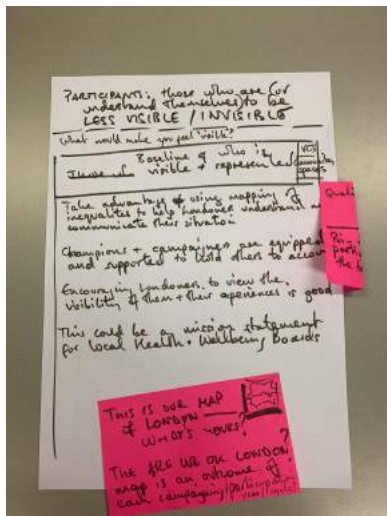 PARTICIPANTS: those who are (or
understand themselves) to be
LESS VISIBLE / INVISIBLE
What would make you feel 'visible'?
Baseline of who is
visible + represented
VCS
spaces
Take advantage of using mapping of
inequalities to help Londoners understand
communicate their situation
Champions + campaigners are equipped
and supported to hold others to account
Encouraging Londoners to view the
visibility of them + their experiences is good
This could be a mission statement
for Local Health + Wellbeing Boards
Quali
THIS IS OUR MAP
of LONDON
WHAT'S YOURS?
THE ARE WE OK LONDON?
map is an outcome of
each campaigning/participant